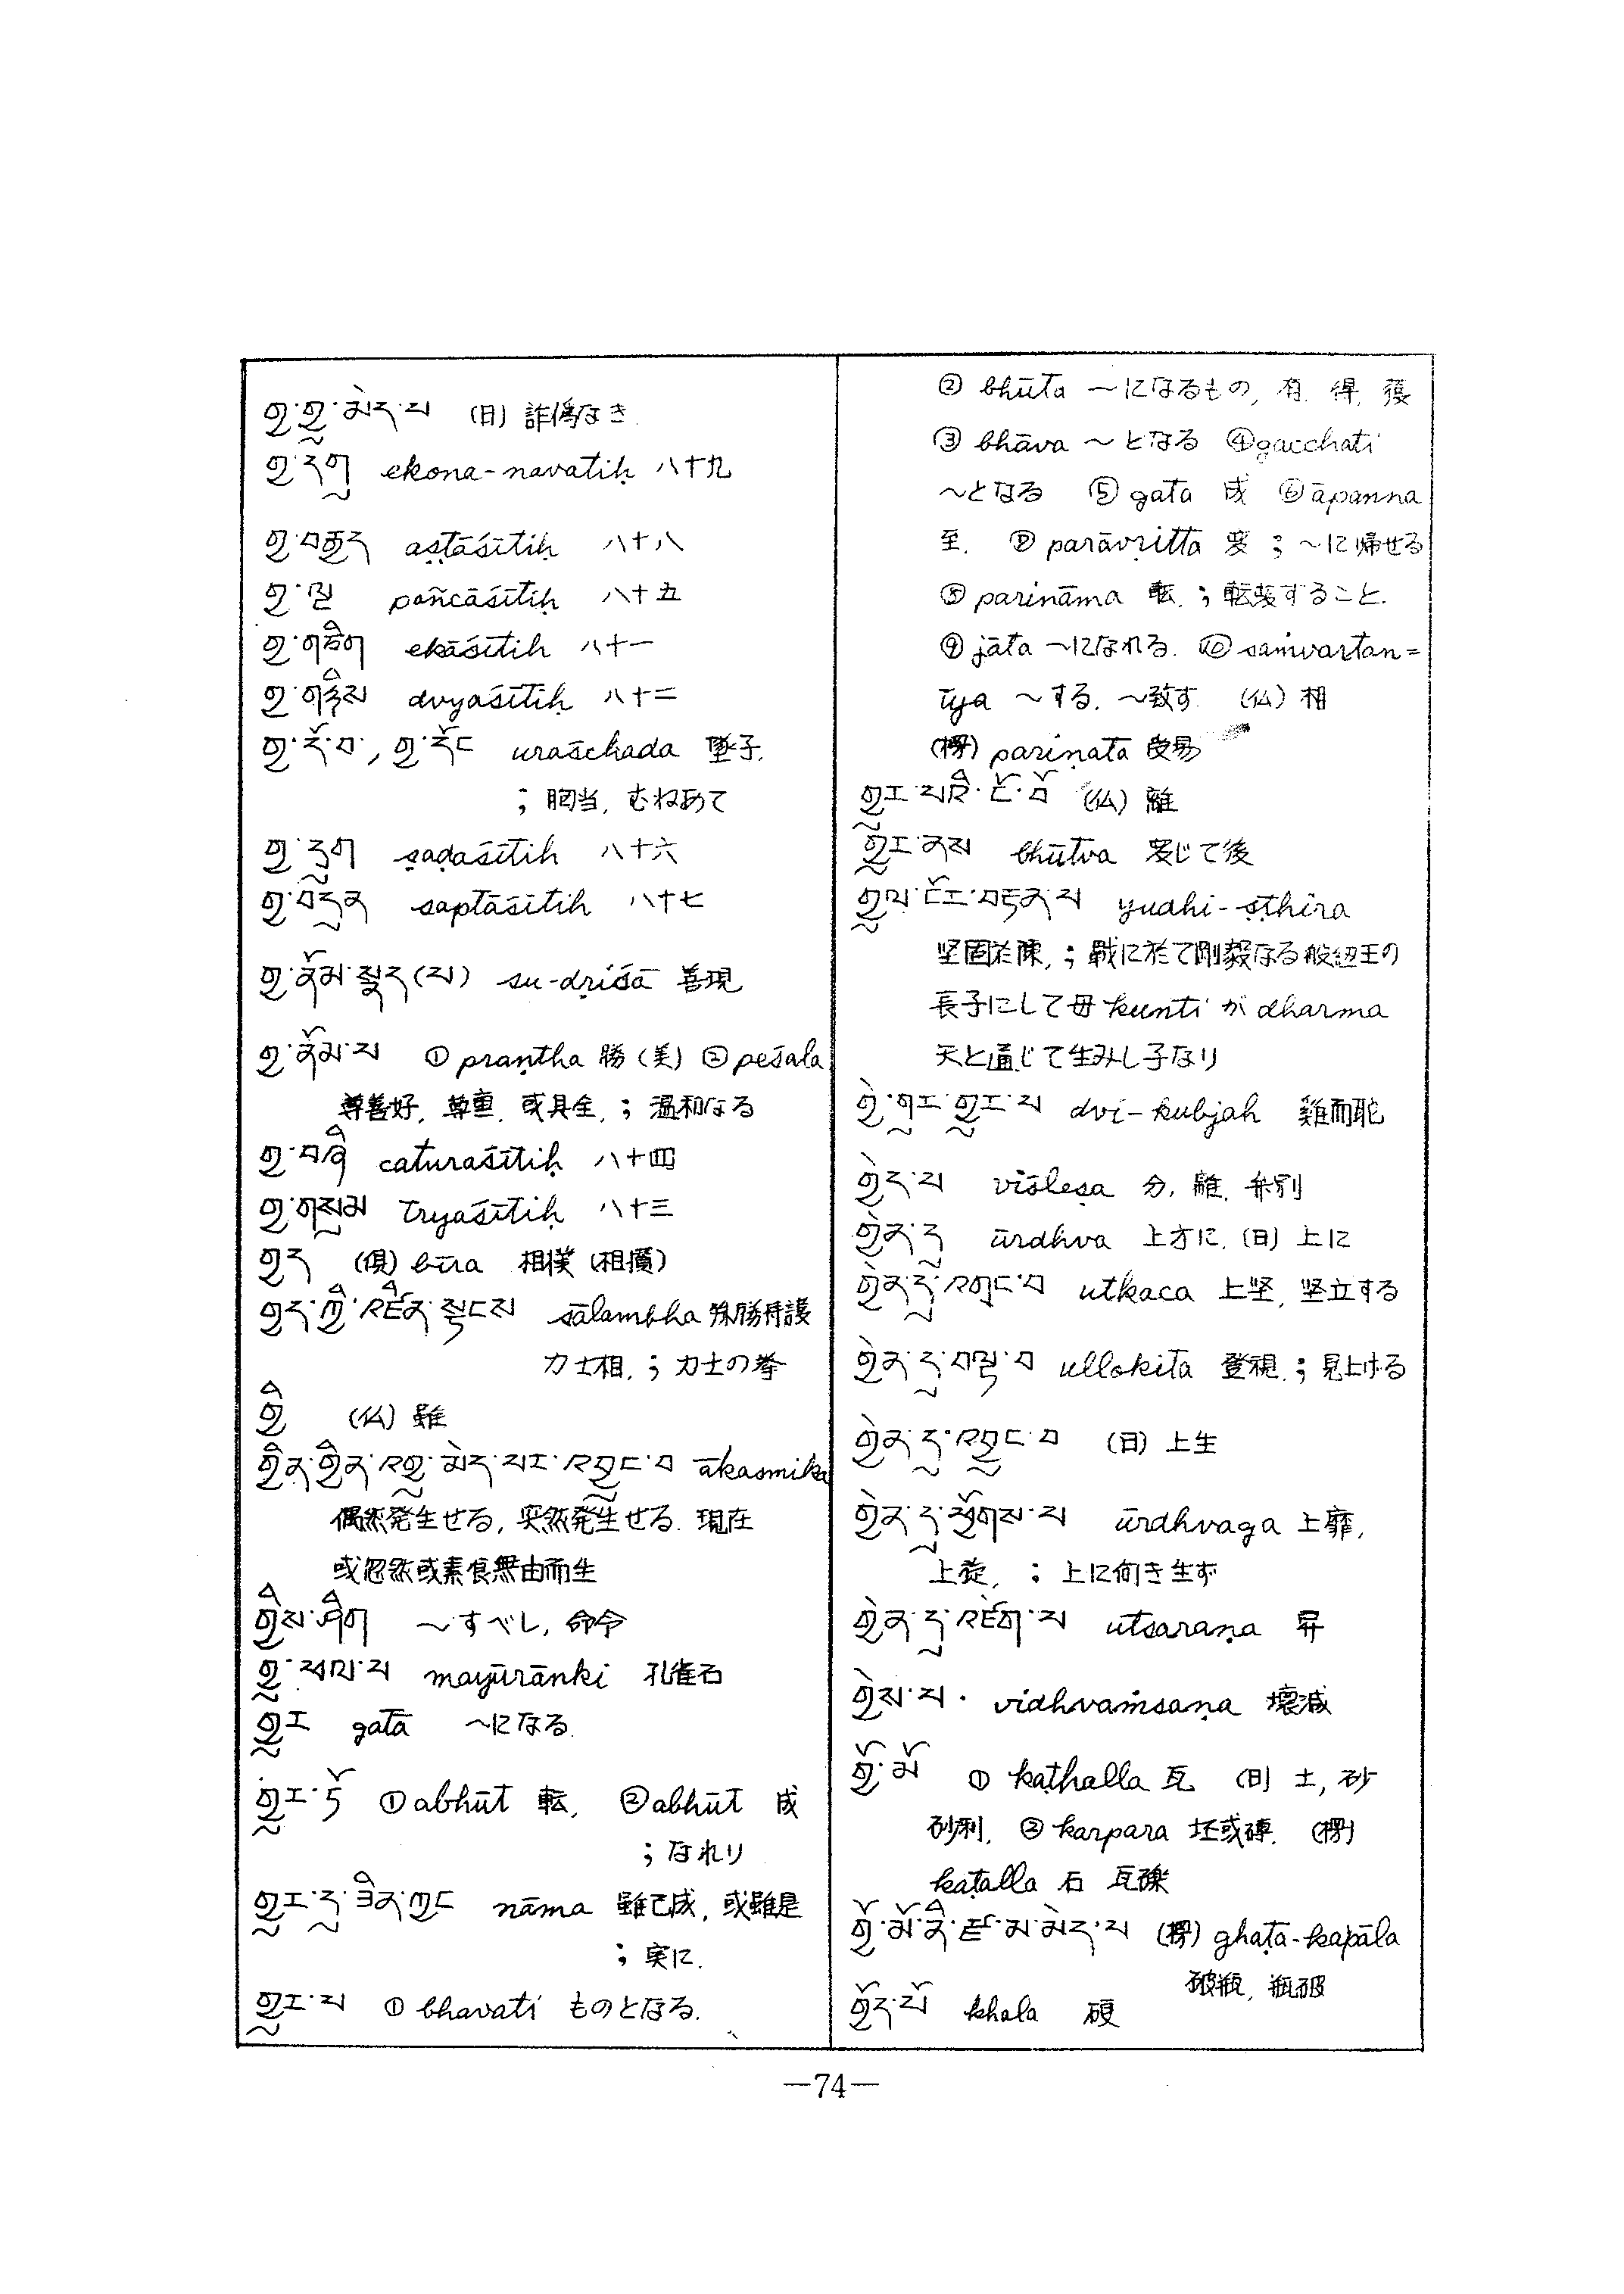 གྱ་གྱུ་མེད་པ (日) 詐偽なき
གྱ་དགུ ekona-navatiḥ 八十九
གྱ་བརྒྱད aṣṭāśītiḥ 八十八
གྱ་ལྔ pañcāśītiḥ 八十五
གྱ་གཅིག ekāśītiḥ 八十一
གྱ་གཉིས dvyaśītiḥ 八十二
གྱ་དོ་བ, གྱ་དོང uraśchada 墜子.
; 胸当, むねあて
གྱ་དྲུག ṣaḍaśītiḥ 八十六
གྱ་བདུན saptāśītiḥ 八十七
གྱ་ནོམ་སྣང(པ) su-dṛiśā 善現
གྱ་ནོམ་པ ① praṇtha 勝 (美) ② peśala
尊善好, 尊重, 或具全, ; 温和なる
གྱ་བཞི caturaśītiḥ 八十四
གྱ་གསུམ tryaśītiḥ 八十三
གྱད (倶) bīra 相撲
གྱད་ཀྱི་འཛིན་སྟངས sālambha 殊勝侍護
力士相, ; 力士の拳
གྱི (仏) 雖
གྱིན་གྱིན་འགྱུ་མེད་པར་འབྱུང་བ ākasmika
偶然発生せる, 突然発生せる. 現在
或忽然或素食無由而生
གྱིས་ཤིག ~すべし, 命令
གྱུ་ mayūrānki 孔雀石
གྱུར gatā ~になる.
གྱུར་ཏོ ① abhūt 転, ② abhūt 成
; なれり
གྱུར་དུ་ཟིན་ཀྱང nāma 雖已成, 或雖是
; 実に.
གྱུར་པ ① bhavati ものとなる.
② bhūta ~になるもの, 有, 得, 獲
③ bhāva ~となる ④ gacchati
~となる ⑤ gata 成 ⑥ āpanna
至. ⑦ parāvṛitta 変 ; ~に帰せる
⑧ parināma 転, ; 転変すること.
⑨ jāta ~になれる. ⑩ saṁvartan=
īya ~する, ~致す (仏) 相
(楞) pariṇata 改易
གྱུར་པའི་ངོ་བོ (仏) 離
གྱུར་ནས bhūtva 変じて後
གྱུལ་ངོར་བརྟན་པ yudhi-ṣṭhira
坚固於陳, ; 戦に於て剛毅なる般紐王の
長子にして母 kunti が dharma
天と通じて生みし子なり
གྱེ་གུར་གྱུར་པ dvi-kubjaḥ 雞而駝
གྱེད་པ viśleṣa 分, 離, 弁別
གྱེན་དུ ūrdhva 上方に, (日) 上に
གྱེན་དུ་འགྲུང་བ utkaca 上坚, 坚立する
གྱེན་དུ་བལྟ་བ ullokita 登視, ; 見上げる
གྱེན་དུ་འབྱུང་བ (日) 上生
གྱེན་དུ་ཕྱོགས་པ ūrdhvaga 上靡,
上旋, ; 上に向き生ず
གྱེན་དུ་འཛེག་པ utsaraṇa 昇
གྱེས་པ. vidhvaṁsaṇa 壊滅
གྱོ་མོ ① kaṭhalla 瓦 (日) 土, 砂
砂利, ② karpara 坯或磚. (楞)
kaṭalla 石 瓦礫
གྱོ་མོ་ནི་རྫ་མ་མེད་པ (楞) ghaṭa-kapāla
破瓶, 瓶破
གྱོད་པོ khala 硬
—74—